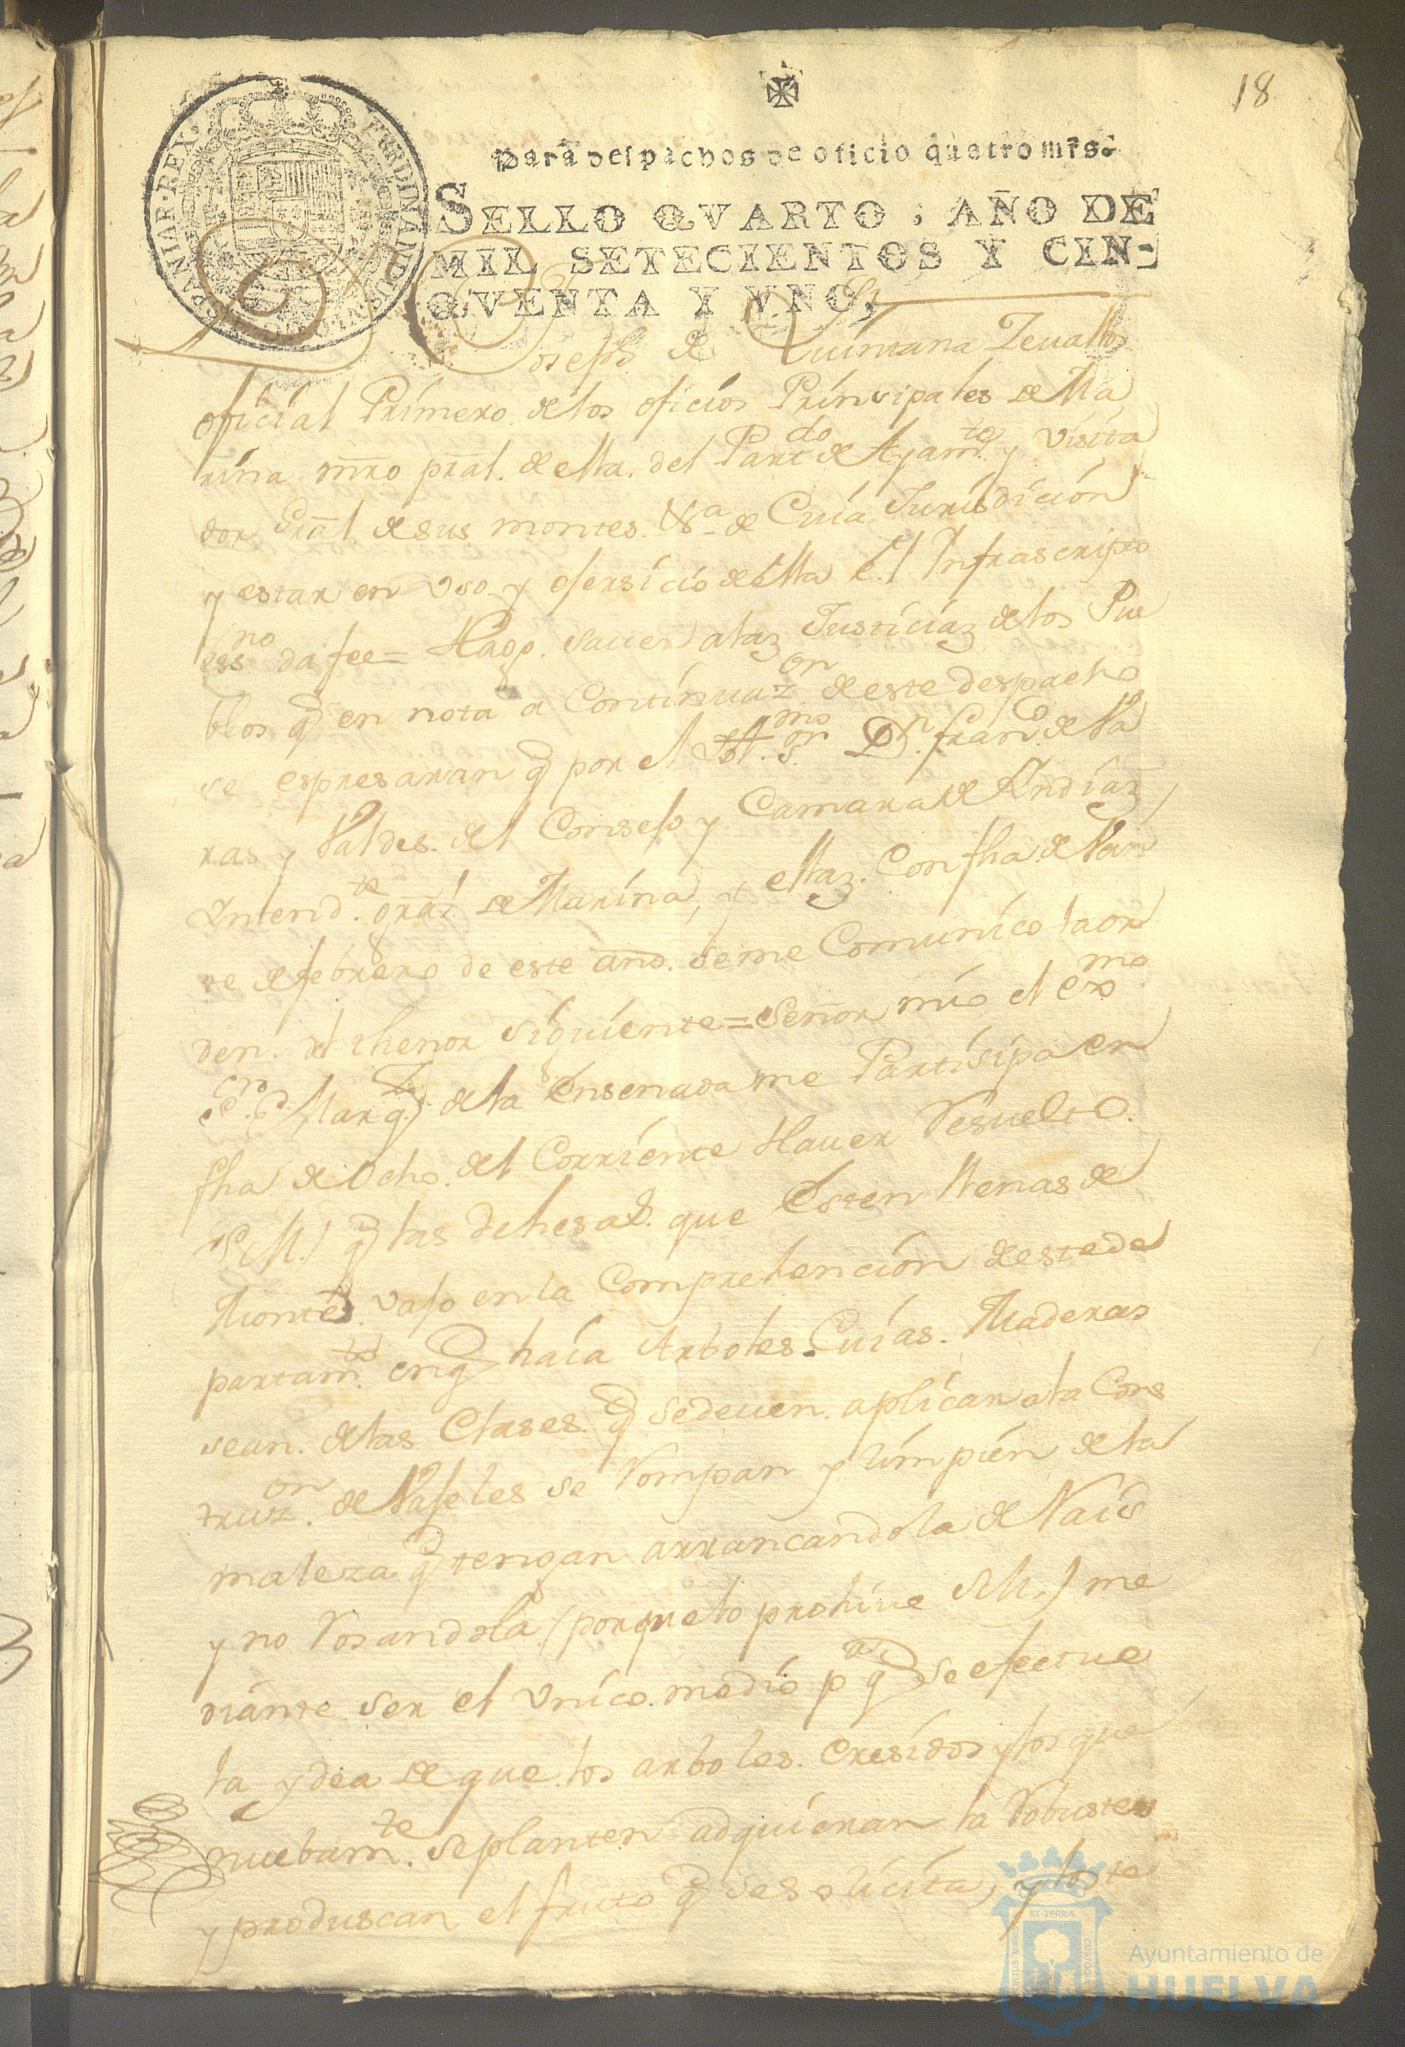 18
Para despachos de oficio quatro mrs.
SELLO QVARTO, AÑO DE
MIL SETECIENTOS Y CIN-
QVENTA Y VNO,
FERDINANDUS
HISPANIAR·REX·
Dn Joseph de Quintana Zeuallos
oficial Primero de los oficios Prinsipales de Ma
rina mro pral. de ella del Partdo de Ayamte y visita
dor Gral. de sus montes &a de Cuia Jurisdicion
y estar en Vso y esersicio de ella el Infrascripto
essno da fee = Hago sauer a las Justicias de los Pue
blos q en nota a Continuazon de este despacho
se espresaran q por el Illmo Sor Dn Franco de Va
ras y Valdes del Consejo y Camara de Yndias
Intendte gral de Marina, y ellas Con fha de Vein
te de febrero de este año se me Comunico la or
den del thenor siguiente = Señor mio el Exmo
Marqz de la Ensenada me Partisipa en
fha de Ocho del Corriente Hauer Resuelto
S.M. q las dehesas que Esten llenas de
Montes vajo en la Comprehencion de este de
partamto en q haia Arboles Cuias Maderas
sean de las Clases q se deuen aplicar a la Cons
truzon de Vajeles se Rompan y limpien de la
maleza q tengan arrancandola de Rais
y no Rosandola (porque lo prohive S.M.) me
diante ser el Vnico medio pa q se efectue
la ydea de que los arboles Cresidos y los que
nuebamte se planten adquieran la Robustez
y produscan el fruto q se solicita, y los te
Ayuntamiento de
HUELVA